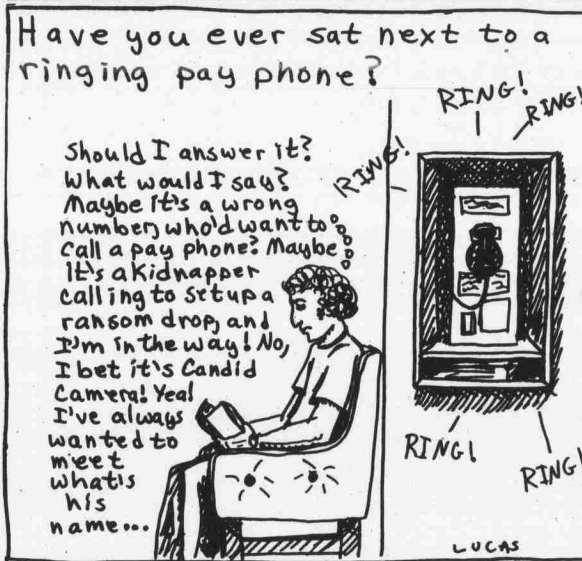 Have you ever sat next to a
ringing pay phone?
Should I answer it?
What would I say?
Maybe it's a wrong
number, who'd want to
call a pay phone? Maybe
It's a kidnapper
calling to setup a
ransom drop, and
I'm in the way! No,
I bet it's Candid
Camera! Yea!
I've always
wanted to
meet
what's
his
name...
RING!
RING!
RING!
RING!
RING!
LUCAS